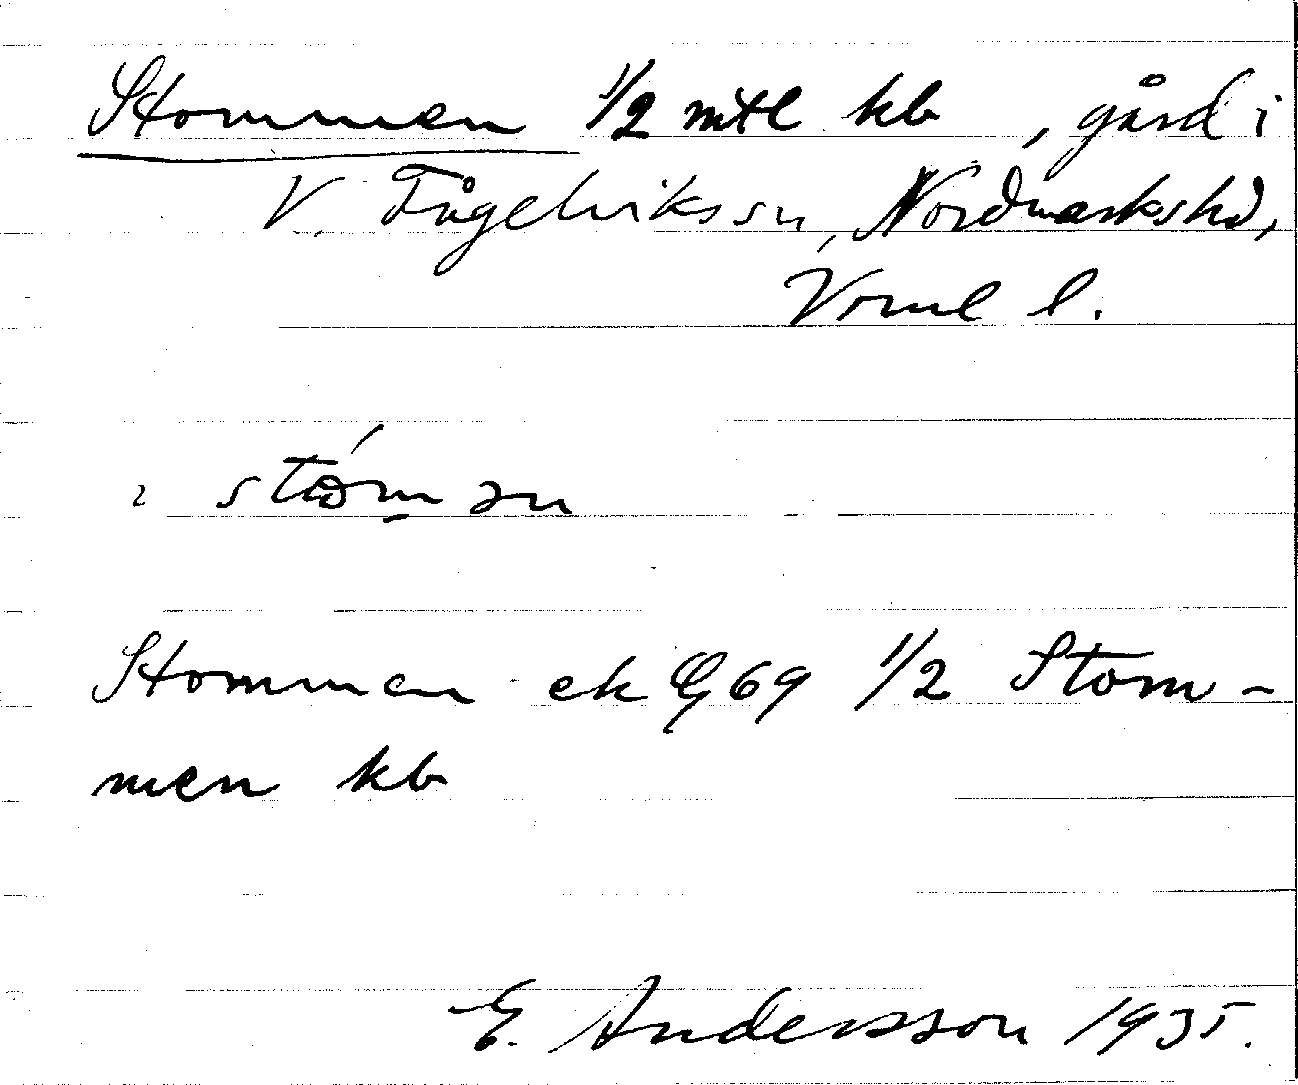 Stommen 1/2 mtl kb, gård i
V. Fågelviks sn, Nordmarks hd,
Vrml l.
Stommen ek G69 1/2 Stom-
men kb
E. Andersson 1935.